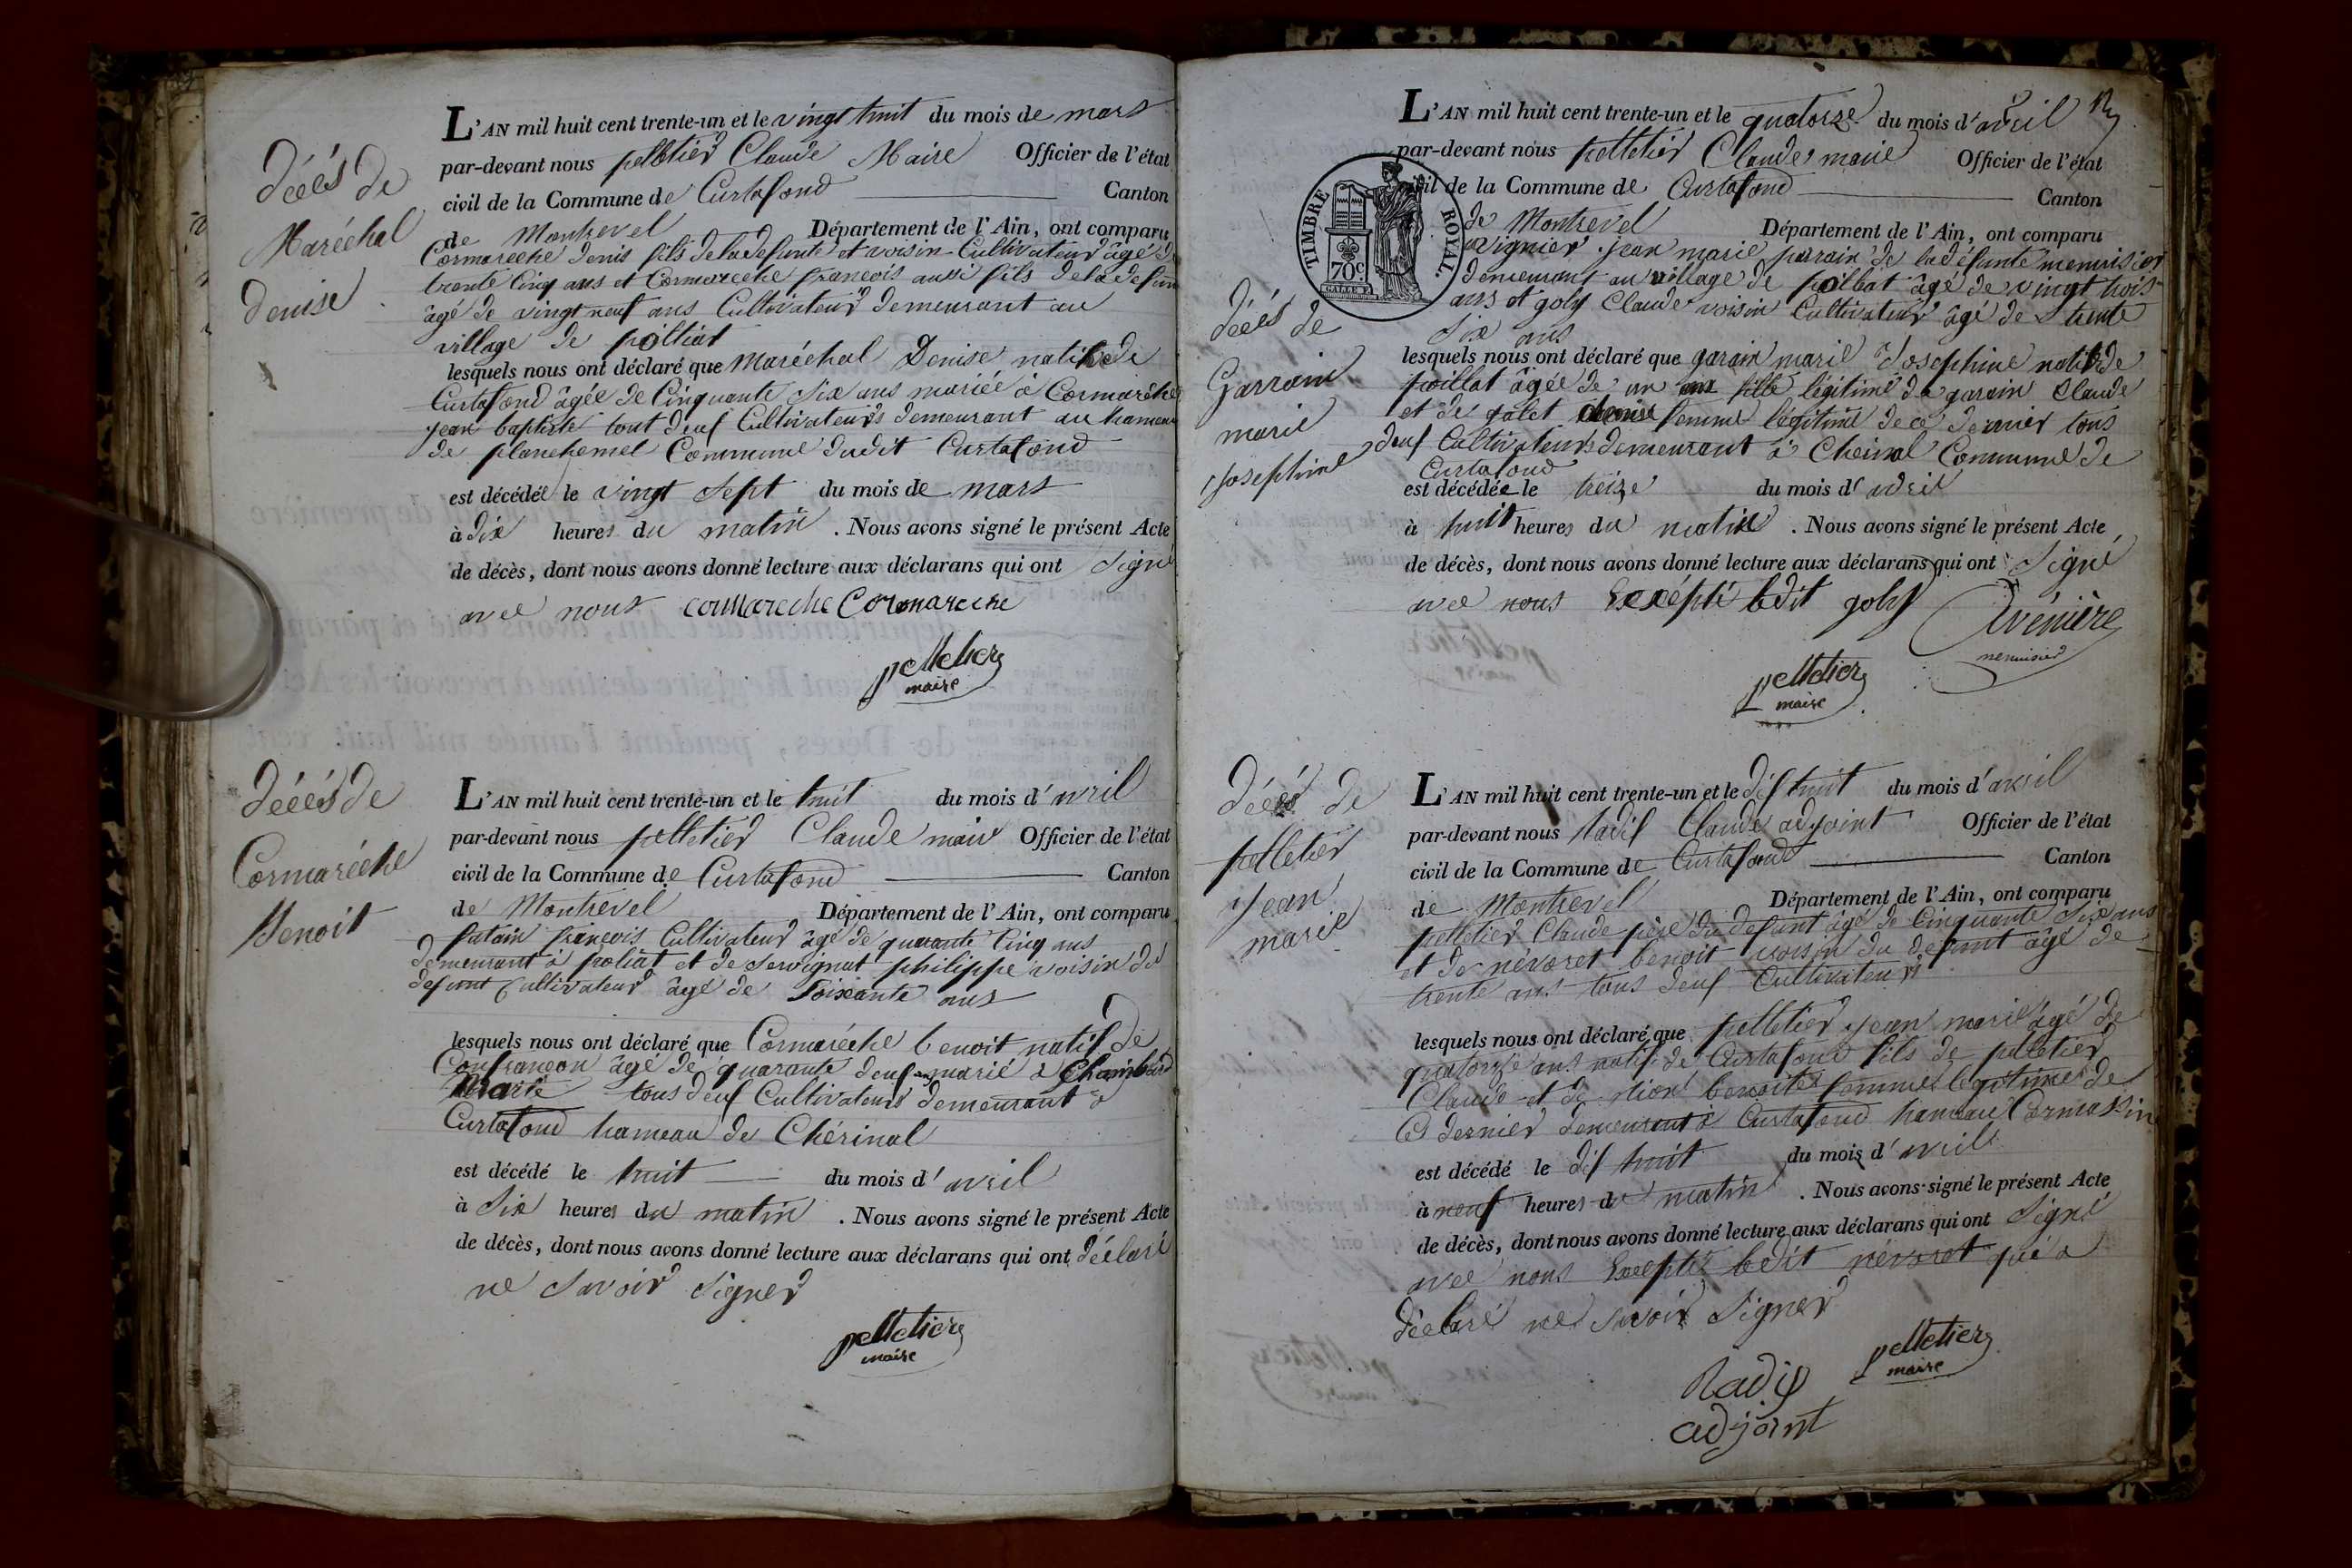 Décés de
Maréchal
Denise
L'AN mil huit cent trente-un et le vingt huit du mois de mars
par-devant nous pelletier Claude Maire Officier de l'état
civil de la Commune de Curtafond Canton
de Montrevel Département de l'Ain, ont comparu
Cormareche Denis fils de la defunte et voisin Cultivateur âgé de
trente Cinq ans et Cormareche françois aussi fils de la defun
âgé de vingt neuf ans Cultivateur demeurant au
village de poltiat
lesquels nous ont déclaré que Maréchal Denise native de
Curtafond âgée de Cinquante Six ans mariée à Cormarèche
jean baptiste tout deuf Cultivateurs demeurant au hameau
de planchemel Commune dudit Curtafond
est décédée le vingt Sept du mois de mars
à dix heures du matin . Nous avons signé le présent Acte
de décès, dont nous avons donné lecture aux déclarans qui ont Signé
avec nous cormareche Cormareche
pelletier
maire
Décés de
Cormaréche
Benoit
L'AN mil huit cent trente-un et le huit du mois d'avril
par-devant nous pelletier Claude maire Officier de l'état
civil de la Commune de Curtafond Canton
de Montrevel Département de l'Ain, ont comparu
françois Cultivateur âgé de quarante Cinq ans
demeurant à poliat et de Servignat philippe voisin du
defunt Cultivateur âgé de Soixante ans
lesquels nous ont déclaré que Cormaréche benoit natif de
Confrançon âgé de quarante deuf ans marié à Chambard
Marie tous deuf Cultivateurs demeurant à
Curtafond hameau de Chérinal
est décédé le huit du mois d'avril
à Six heures du matin . Nous avons signé le présent Acte
de décès, dont nous avons donné lecture aux déclarans qui ont déclaré
ne Savoir Signer
pelletier
maire
L'AN mil huit cent trente-un et le quatorze du mois d'avril
par-devant nous pelletier Claude maire Officier de l'état
civil de la Commune de Curtafond Canton
de Montrevel Département de l'Ain, ont comparu
TIMBRE ROYAL.
70c.
jean marie parain de la défunte menuisier
demeurant au village de poilbat âgé de vingt trois
ans et goly Claude voisin Cultivateur âgé de trente
Six ans
Décés de
Garrain
marie
Josephine
lesquels nous ont déclaré que garain marie Josephine native de
poillat âgée de un an fille légitime de garain Claude
et de galet denise femme légitime de ce dernier tous
deuf Cultivateurs demeurant à Cheinal Commune de
Curtafond
est décédée le treize du mois d'avril
à huit heures du matin . Nous avons signé le présent Acte
de décès, dont nous avons donné lecture aux déclarans qui ont Signé
avec nous Excépté ledit goly
menuisier
pelletier
maire
Décés de
pelletier
Jean
marie
L'AN mil huit cent trente-un et le dif huit du mois d'avril
par-devant nous Radif Claude adjoint Officier de l'état
civil de la Commune de Curtafond Canton
de Montrevel Département de l'Ain, ont comparu
pelletier Claude père du defunt âgé de Cinquante Six ans
et de névoret benoit voisin du defunt âgé de
trente ans tous deuf Cultivateurs
lesquels nous ont déclaré que pelletier jean marie âgé de
quatorze ans natif de Curtafond fils de pelletier
Claude et de tion benoite femme legitime de
Ce dernier demeurant à Curtafond hameau Cormassin
est décédé le dif huit du mois d'avril
à neuf heures du matin . Nous avons signé le présent Acte
de décès, dont nous avons donné lecture aux déclarans qui ont Signé
avec nous Excepté ledit névoret qui a
déclaré ne Savoir Signer
pelletier
maire
Radif
adjoint